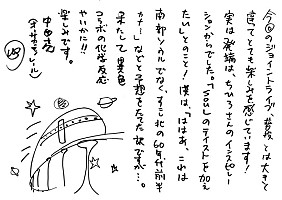 今回のジョイントライブ、普段とは大きく
違てとても楽しみを感じています!
実は発端は、ちひろさんのインスピレー
ションからでした。「soul」のテイストを加え
たいとのこと! 僕は、「ははあ、これは
南部ソウルでなく、すこし北の60年代前半
カナー」などと予想をたてた訳ですが…。
果たして異色
コラボの化学反応
やいかに!!
楽しみです。
中田亮
(オーサカ=モノレール)